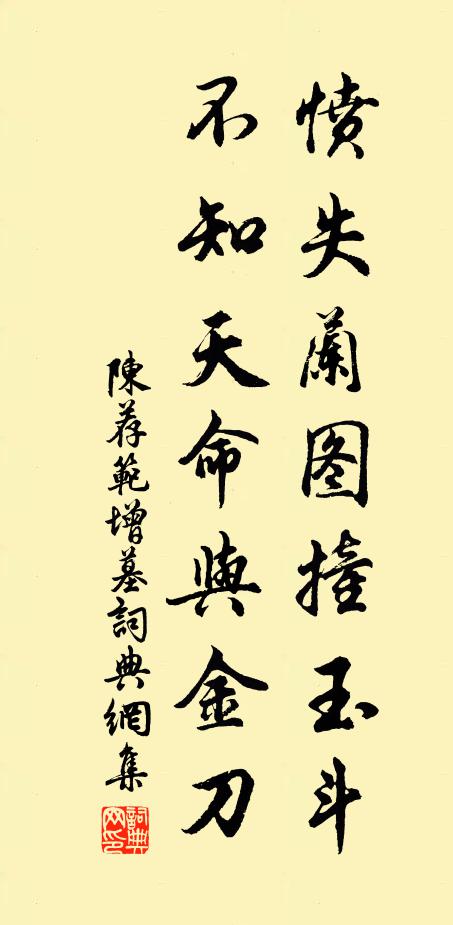 憤失蘭图撞玉斗
不知天命與金刀
陳荐範增墓詞典網集
詞典网印